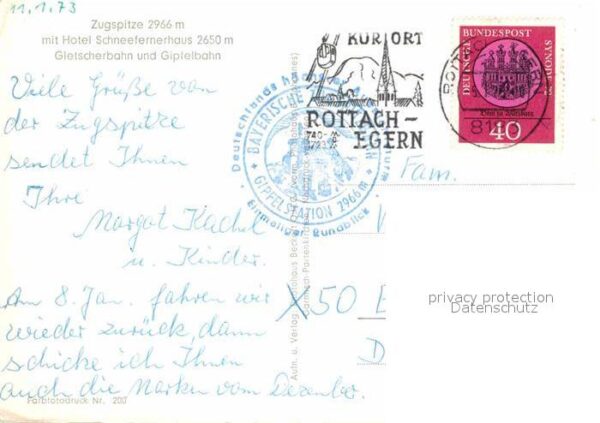 11.1.73
Zugspitze 2966 m
mit Hotel Schneefernerhaus 2650 m
Gletscherbahn und Gipfelbahn
Viele Grüße von
der Zugspitze
sendet Ihnen
Ihre
Margot Kachel
u. Kinder.
Am 8. Jan. fahren wir
wieder zurück, dann
schicke ich Ihnen
auch die Marken vom Dezember.
Farbfotodruck Nr. 200
Deutschlands
BAYERISCHE
GIPFELSTATION 2966 m
Einmaliger Rundblick
KURORT
ROTTACH-
EGERN
740-
DEUTSCHE BUNDESPOST
SYNODE
40
Fam.
X50
D
Aufn. u. Verlag
privacy protection
Datenschutz